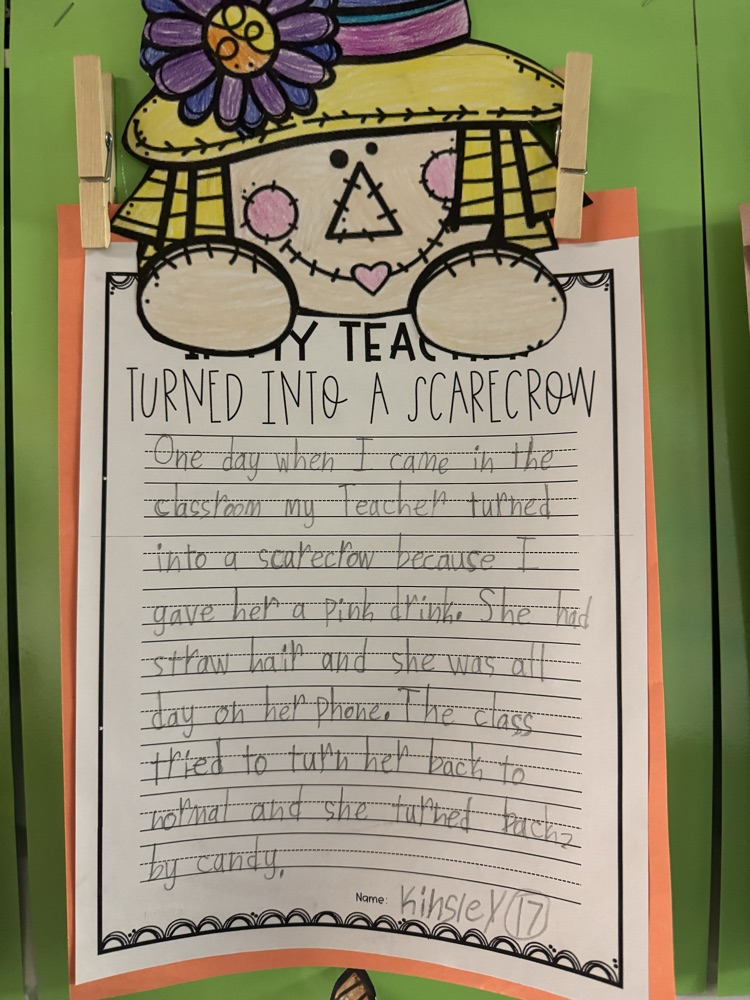 TURNED INTO A SCARECROW
One day when I came in the
classroom my Teacher turned
into a scarecrow because I
gave her a pink drink. She had
straw hair and she was all
day on her phone. The class
tried to turn her back to
normal and she turned back
by candy.
Name: Kinsley 17